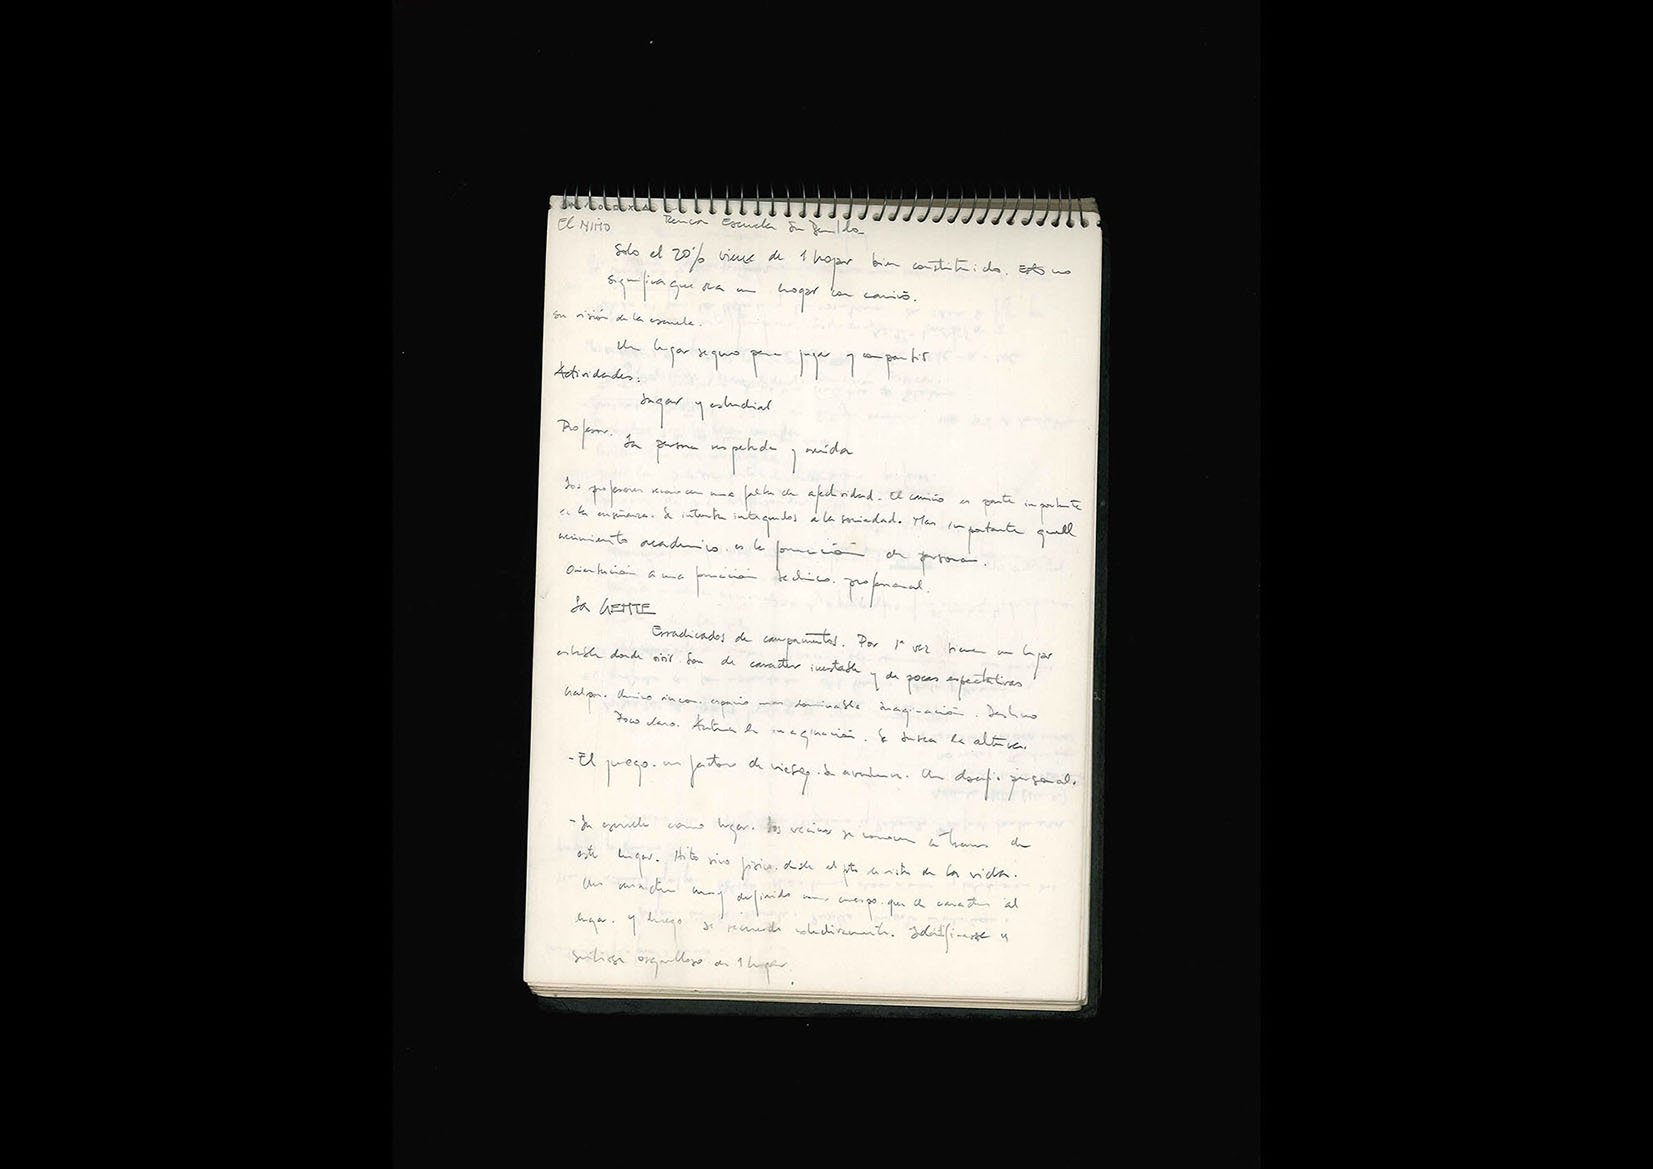 EL NIÑO Escuela
Solo el 20% viene de 1 hogar bien constituido. Esto no
significa que sea un hogar con cariño.
su visión de la escuela.
Un lugar seguro para jugar y compartir
Actividades.
Jugar y estudiar
Profesor. La persona respetada y querida
Los profesores reconocen una falta de afectividad. El cariño es parte importante
en la enseñanza. Se intenta integrarlos a la sociedad. Mas importante que el
académico. es la formación de personas.
Orientación a una formación técnico. profesional.
La GENTE
Erradicados de campamentos. Por 1ª vez tienen un lugar
estable donde vivir. Son de caracter inestable y de pocas expectativas
imaginación. Destino
Foco claro. la imaginación. Se busca la altura.
- El juego. un factor de riesgo. La aventura. Un desafío personal.
- La escuela como lugar. Los vecinos se conocen a traves de
este lugar. Hito sino físico. desde el pto de vista de la vida.
Un caracter muy definido como cuerpo. que da caracter al
lugar. y luego se recuerda colectivamente. Identificarse y
sentirse orgulloso de 1 lugar.